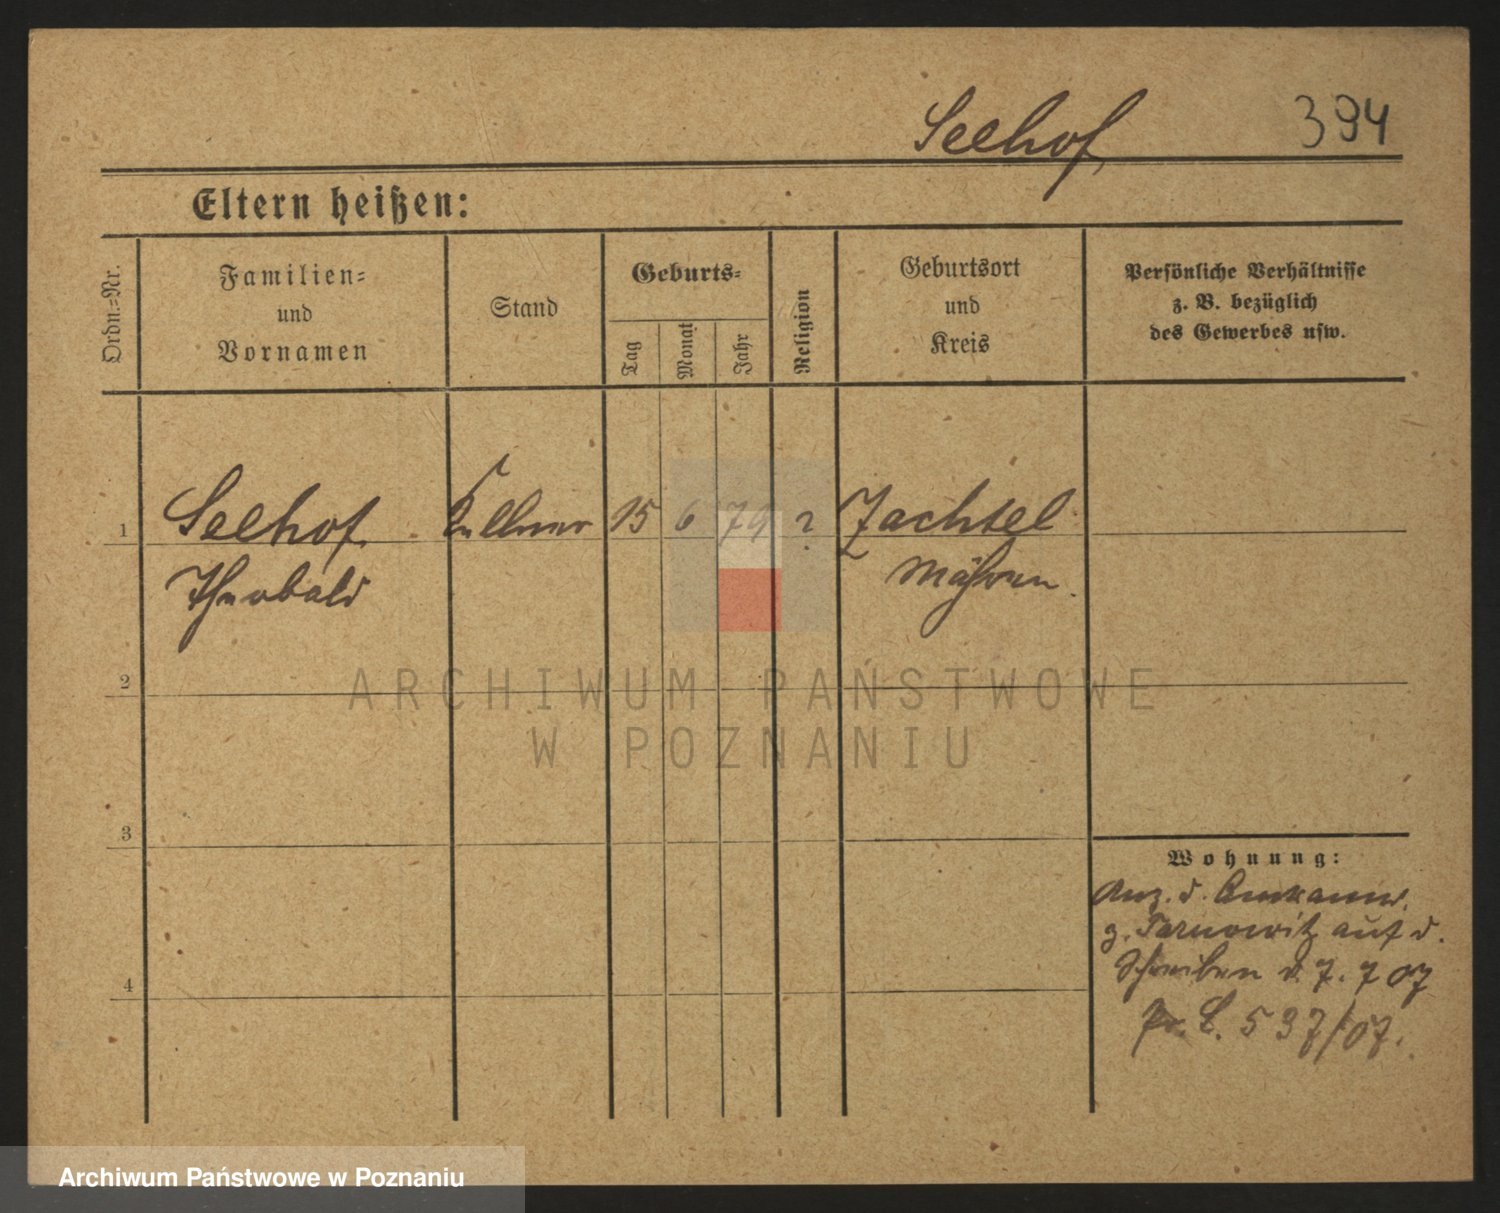 Seehof
394
Eltern heißen:
Ordn.=Nr.
Familien=
und
Vornamen
Stand
Geburts=
Tag
Monat
Jahr
Religion
Geburtsort
und
Kreis
Persönliche Verhältnisse
z. B. bezüglich
des Gewerbes usw.
1
Seehof
Theobald
Kellner
15
6
79
?
Zachtel
Mähren.
2
ARCHIWUM PAŃSTWOWE
W POZNANIU
3
4
Wohnung:
Anz. d.
z. Tarnowitz auf d.
Schreiben v. 7. 7 07
537/07.
Archiwum Państwowe w Poznaniu